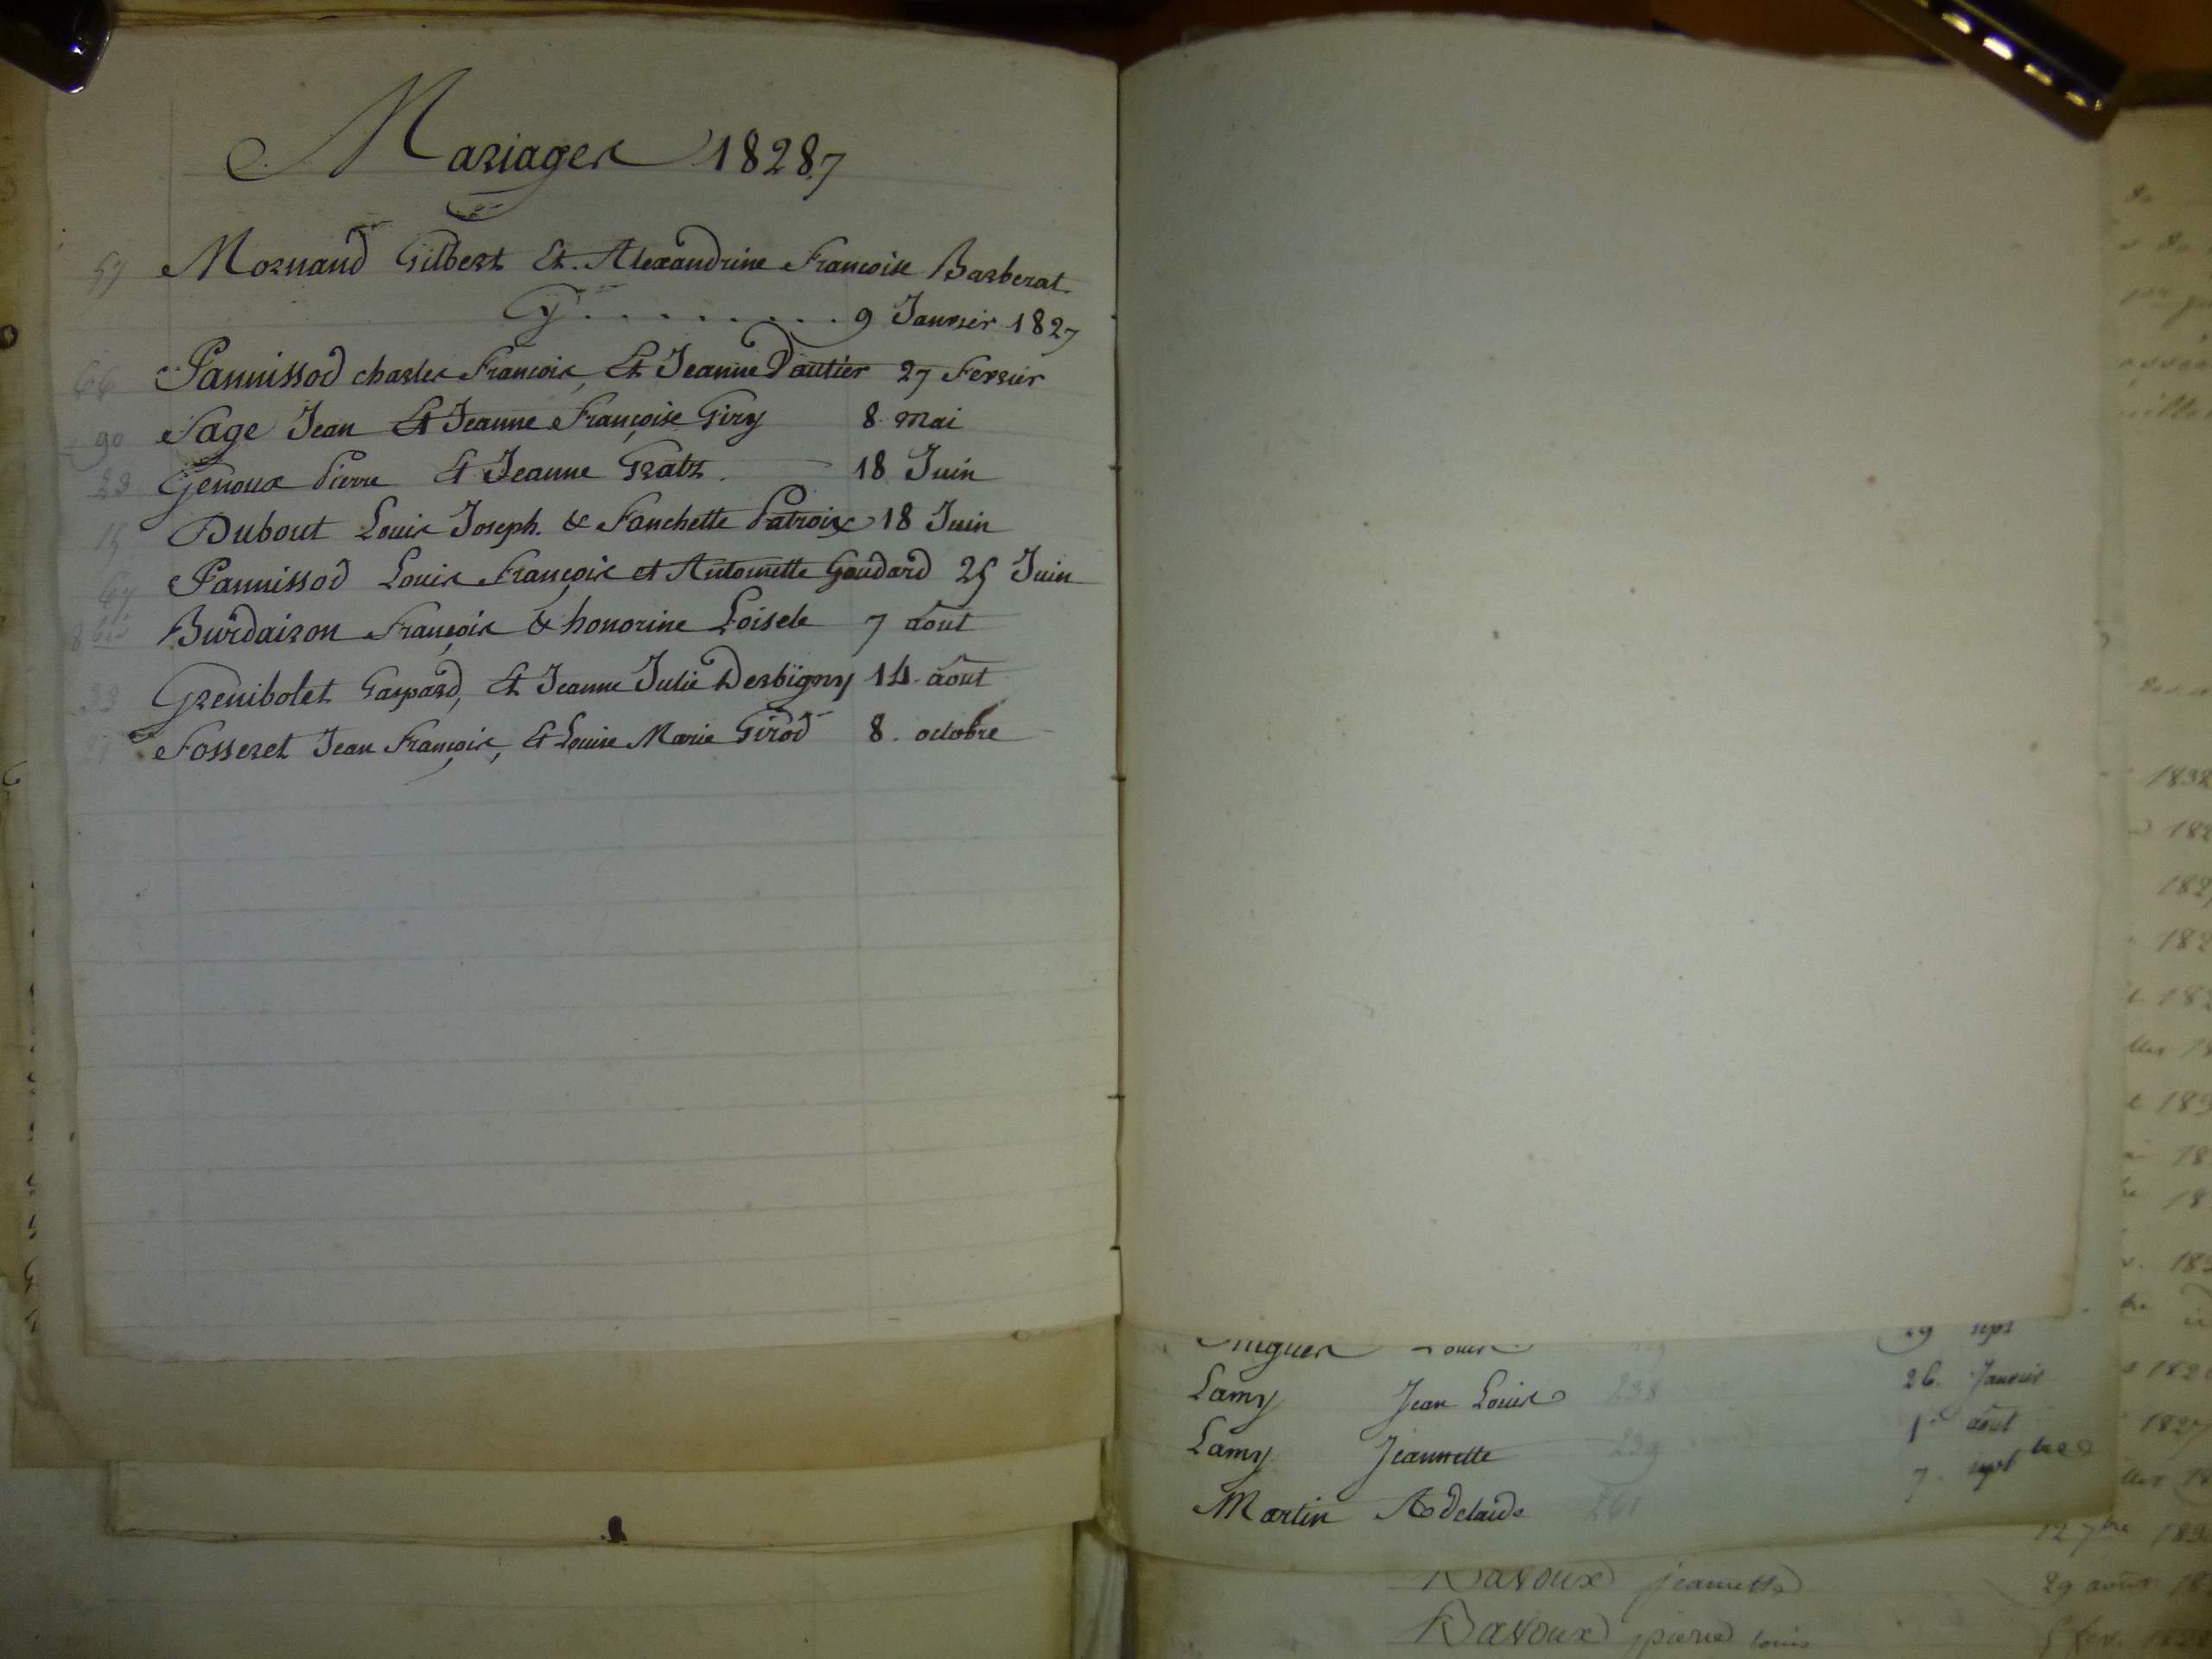 Mariages 1828.7
57 Mornand Gilbert Et. Alexandrine Francoise Barberat
Cy . . . . . . . . . 9 Janvier 1827
66 Pannissod charles Francois, Et Jeanne Vautier 27 Fevrier
90 Sage Jean Et Jeanne Françoise Giry 8 mai
23 Genoux Pierre Et Jeanne Gratz. 18 Juin
15 Dubout Louis Joseph. & Fanchette Patroix 18 Juin
67 Pannissod Louis François et Antoinette Goudard 25 Juin
8 bis Burdairon François & honorine Loisele 7 août
33 Grenibolet Gaspard, Et Jeanne Julie Derbigny 14 août
21 Fosseret Jean François, Et Louise Marie Girod 8. octobre
29 sept
Lamy Jean Louis 238 26. Janvier
Lamy Jeannette 239 1er août
Martin Adelaide 7. septbre
12 7bre
Davoux jeannette 29 aoûs
Davoux pierre louis 5 fév.
1827